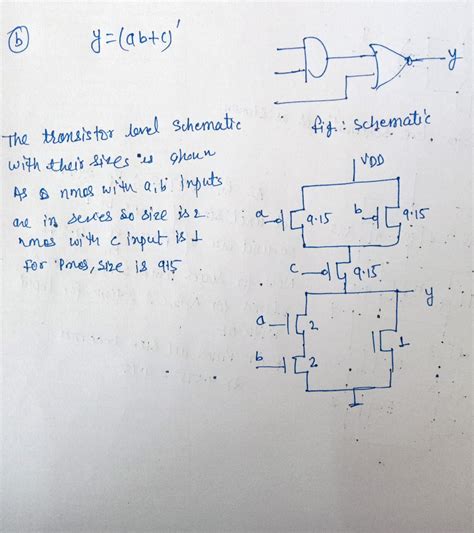 (b) y=(ab+c)'
y
fig.: schematic
The transistor level schematic
with their sizes is shown
As nmos with a,b inputs
are in series so size is 2
nmos with c input is 1
for Pmos, size is 9.15
VDD
a 9.15 b 9.15
c 9.15
y
a 2
1
b 2